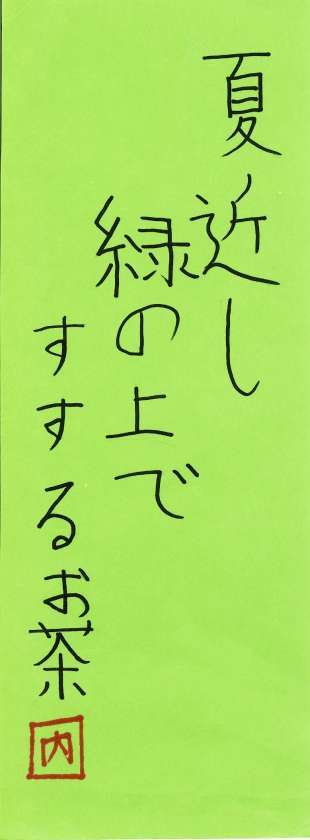 夏近し
緑の上で
すするお茶
内